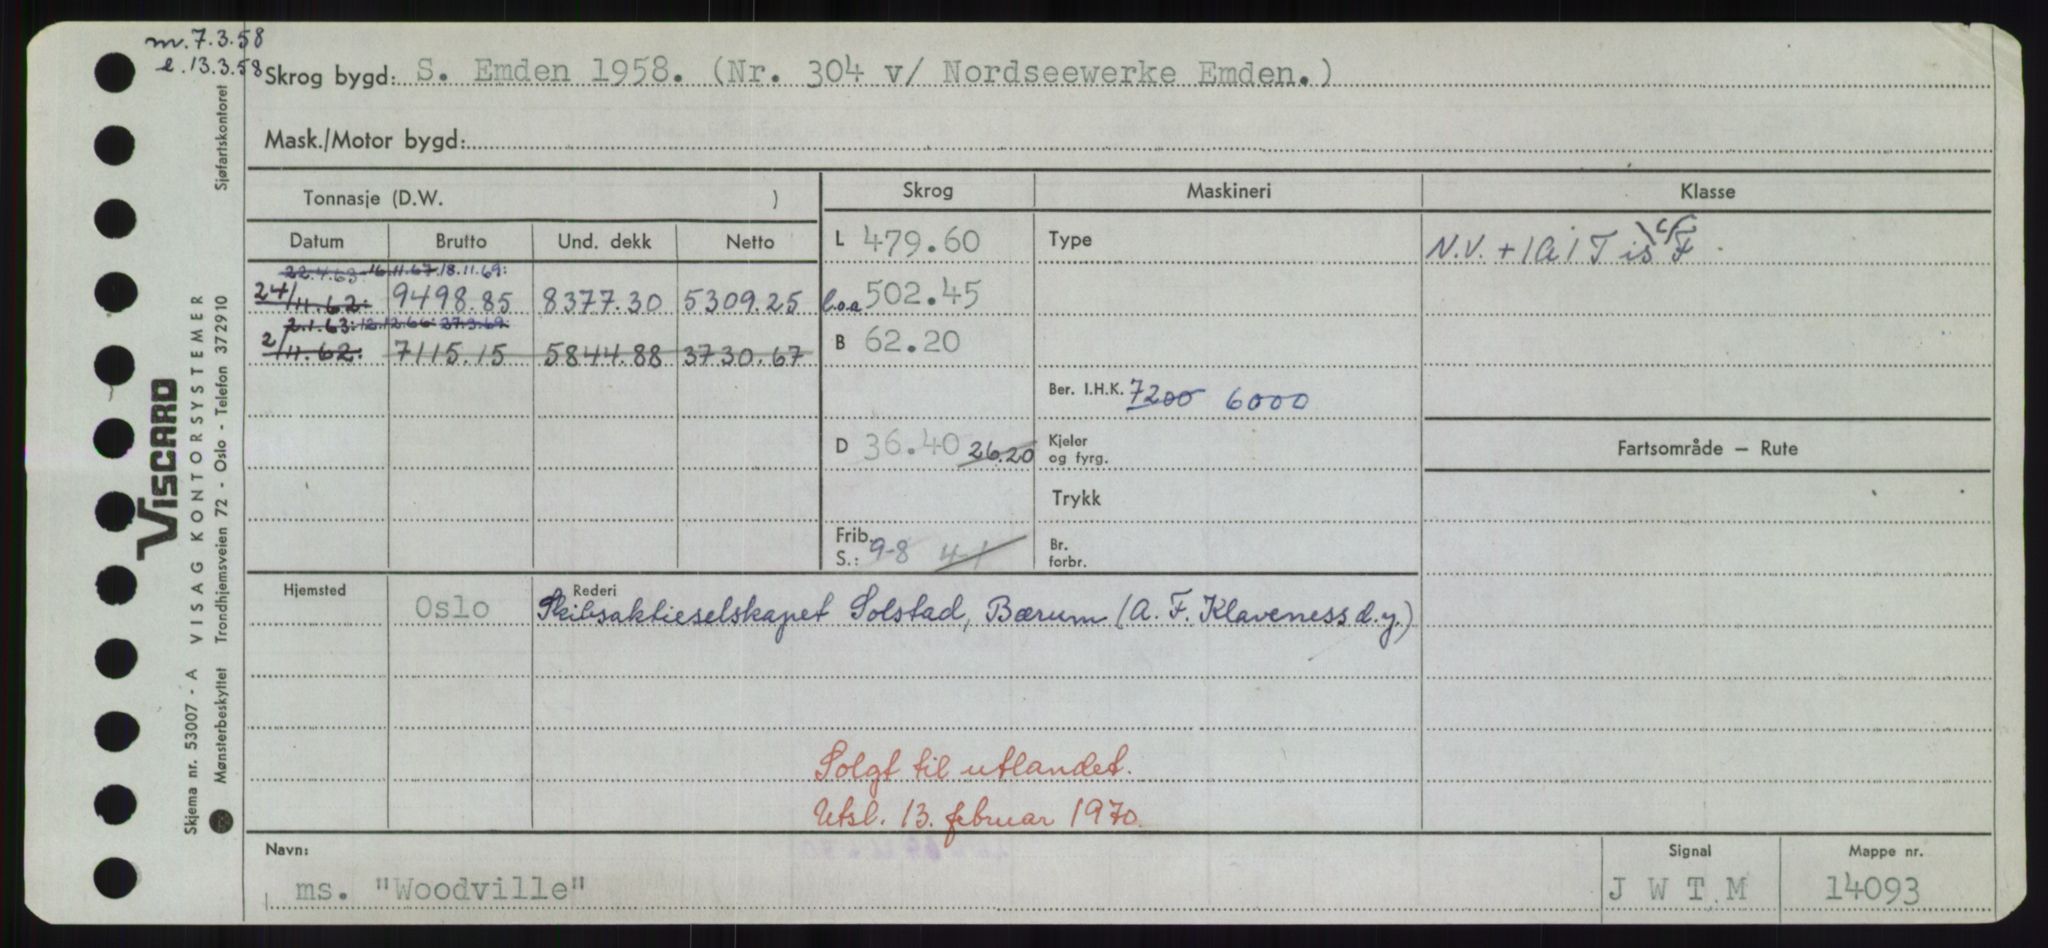 m. 7.3.58
e. 13.3.58
Skrog bygd: S. Emden 1958. (Nr. 304 v/ Nordseewerke Emden.)
Mask./Motor bygd:
Tonnasje (D.W. )
Skrog Maskineri Klasse
Datum Brutto Und. dekk Netto
L 479.60
Type
N.V. + 1A1 T is c F
22.4.63. 16.11.67. 18.11.69.
24/11.62. 9498.85 8377.30 5309.25
l.o.a 502.45
2.1.63. 12.12.66. 27.3.69.
2/11.62. 7115.15 5844.88 3730.67
B 62.20
Ber. I.H.K. 7200 6000
D 36.40 26.20
Kjeler og fyrg.
Fartsområde — Rute
Trykk
Frib. S.: 9-8 4-1
Br. forbr.
Hjemsted Rederi
Oslo Skibsaktieselskapet Solstad, Bærum (A. F. Klaveness d.y.)
Solgt til utlandet.
Utsl. 13. februar 1970.
Navn: Signal Mappe nr.
ms. "Woodville" J W T M 14093
VISCARD
Skjema nr. 53007 - A VISAG KONTORSYSTEMER
Mønsterbeskyttet Trondhjemsveien 72 - Oslo - Telefon 372910 Sjøfartskontoret